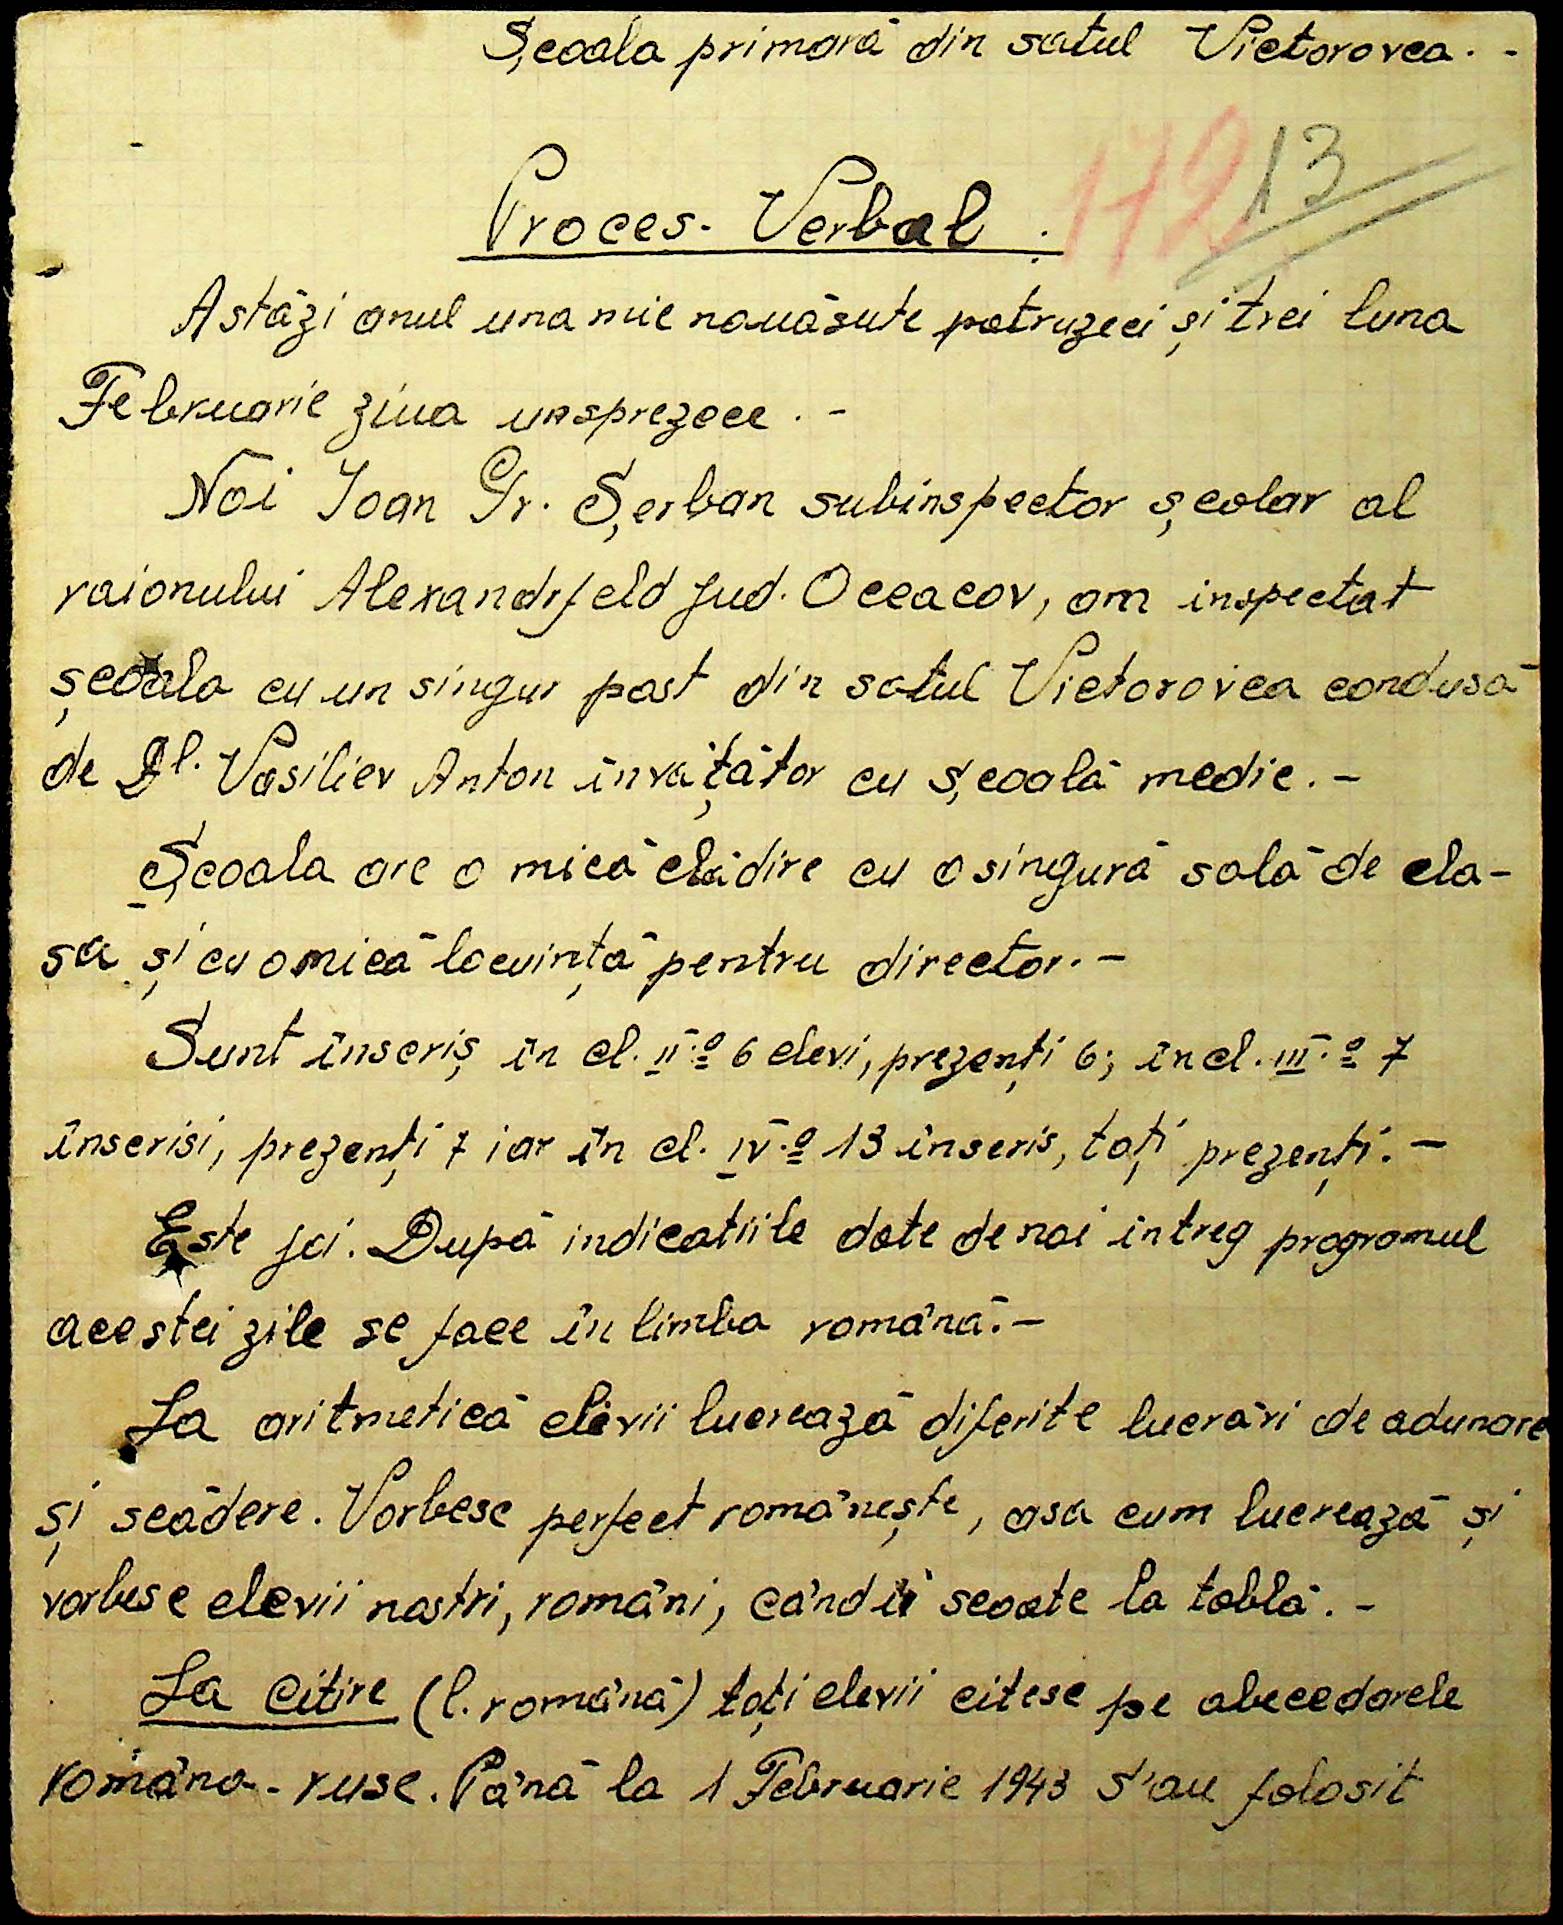 Școala primară din satul Victorovca. -
172 13
Proces-Verbal.
Astăzi anul una mie nouăsute patruzeci și trei luna
Februarie ziua unsprezece. -
Noi Ioan Gr. Șerban subinspector școlar al
raionului Alexandrfeld jud. Oceacov, am inspectat
școala cu un singur post din satul Victorovca condusă
de Dl. Vasiliev Anton învățător cu școală medie. -
Școala are o mică clădire cu o singură sală de cla-
sa și cu o mică locuință pentru director. -
Sunt înscriș in cl. II-a 6 elevi, prezenți 6; in cl. III-a 7
înscrisi, prezenți 7 iar în cl. IV-a 13 inscris, toți prezenți. -
Este joi. După indicatiile date de noi intreg programul
acestei zile se face în limba română. -
La aritmetică elevii lucrează diferite lucrări de adunare
și scădere. Vorbesc perfect românește, asa cum lucrează și
vorbesc elevii nostri, români, când ii scoate la tablă. -
La Citire (l. română) toți elevii citesc pe abecedarele
româno-ruse. Până la 1 Februarie 1943 s'au folosit